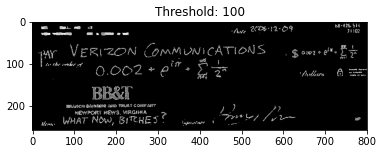 Threshold: 100
Date 2006-12-09
PAY to the order of VERIZON COMMUNICATIONS $ 0.002 + e^{iπ} + ∑_{n=1}^{∞} 1/2^n
0.002 + e^{iπ} + ∑_{n=1}^{∞} 1/2^n Dollars
BB&T
BRANCH BANKING AND TRUST COMPANY
NEWPORT NEWS, VIRGINIA
Memo: WHAT NOW, BITCHES?
0
100
200
0 100 200 300 400 500 600 700 800